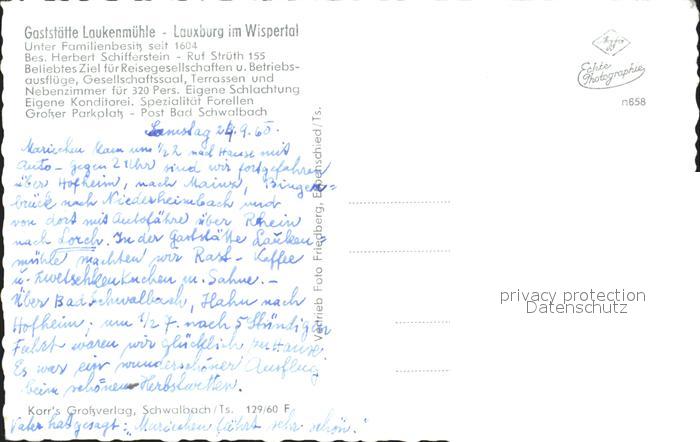 Gaststätte Laukenmühle - Lauxburg im Wispertal
Unter Familienbesitz seit 1604
Bes. Herbert Schifferstein - Ruf Strüth 155
Beliebtes Ziel für Reisegesellschaften u. Betriebs-
ausflüge, Gesellschaftssaal, Terrassen und
Nebenzimmer für 320 Pers. Eigene Schlachtung
Eigene Konditorei. Spezialität Forellen
Großer Parkplatz - Post Bad Schwalbach
Echte
Photographie
n658
Samstag 24.9.60.
Mariechen kam um 1/2 2 nach Hause mit
Auto - gegen 2 Uhr sind wir fortgefahren
über Hofheim, nach Mainz, Bingen=
brück nach Niederheimbach und
von dort mit Autofähre über Rhein
nach Lorch. In der Gaststätte Lauken=
mühle machten wir Rast - Kaffee
u. Zwetschkenkuchen m. Sahne. -
Über Bad Schwalbach, Hahn nach
Hofheim, um 1/2 7. nach 5 Stündiger
Fahrt waren wir glücklich zu Hause
Es war ein wunderschöner Ausflug
beim schönen Herbstwetter.
Korr's Großverlag, Schwalbach/Ts. 129/60 F
Vater hat gesagt: "Mariechen fährt sehr schön."
Vertrieb Foto Friedberg, Eppenschied/Ts.
privacy protection
Datenschutz